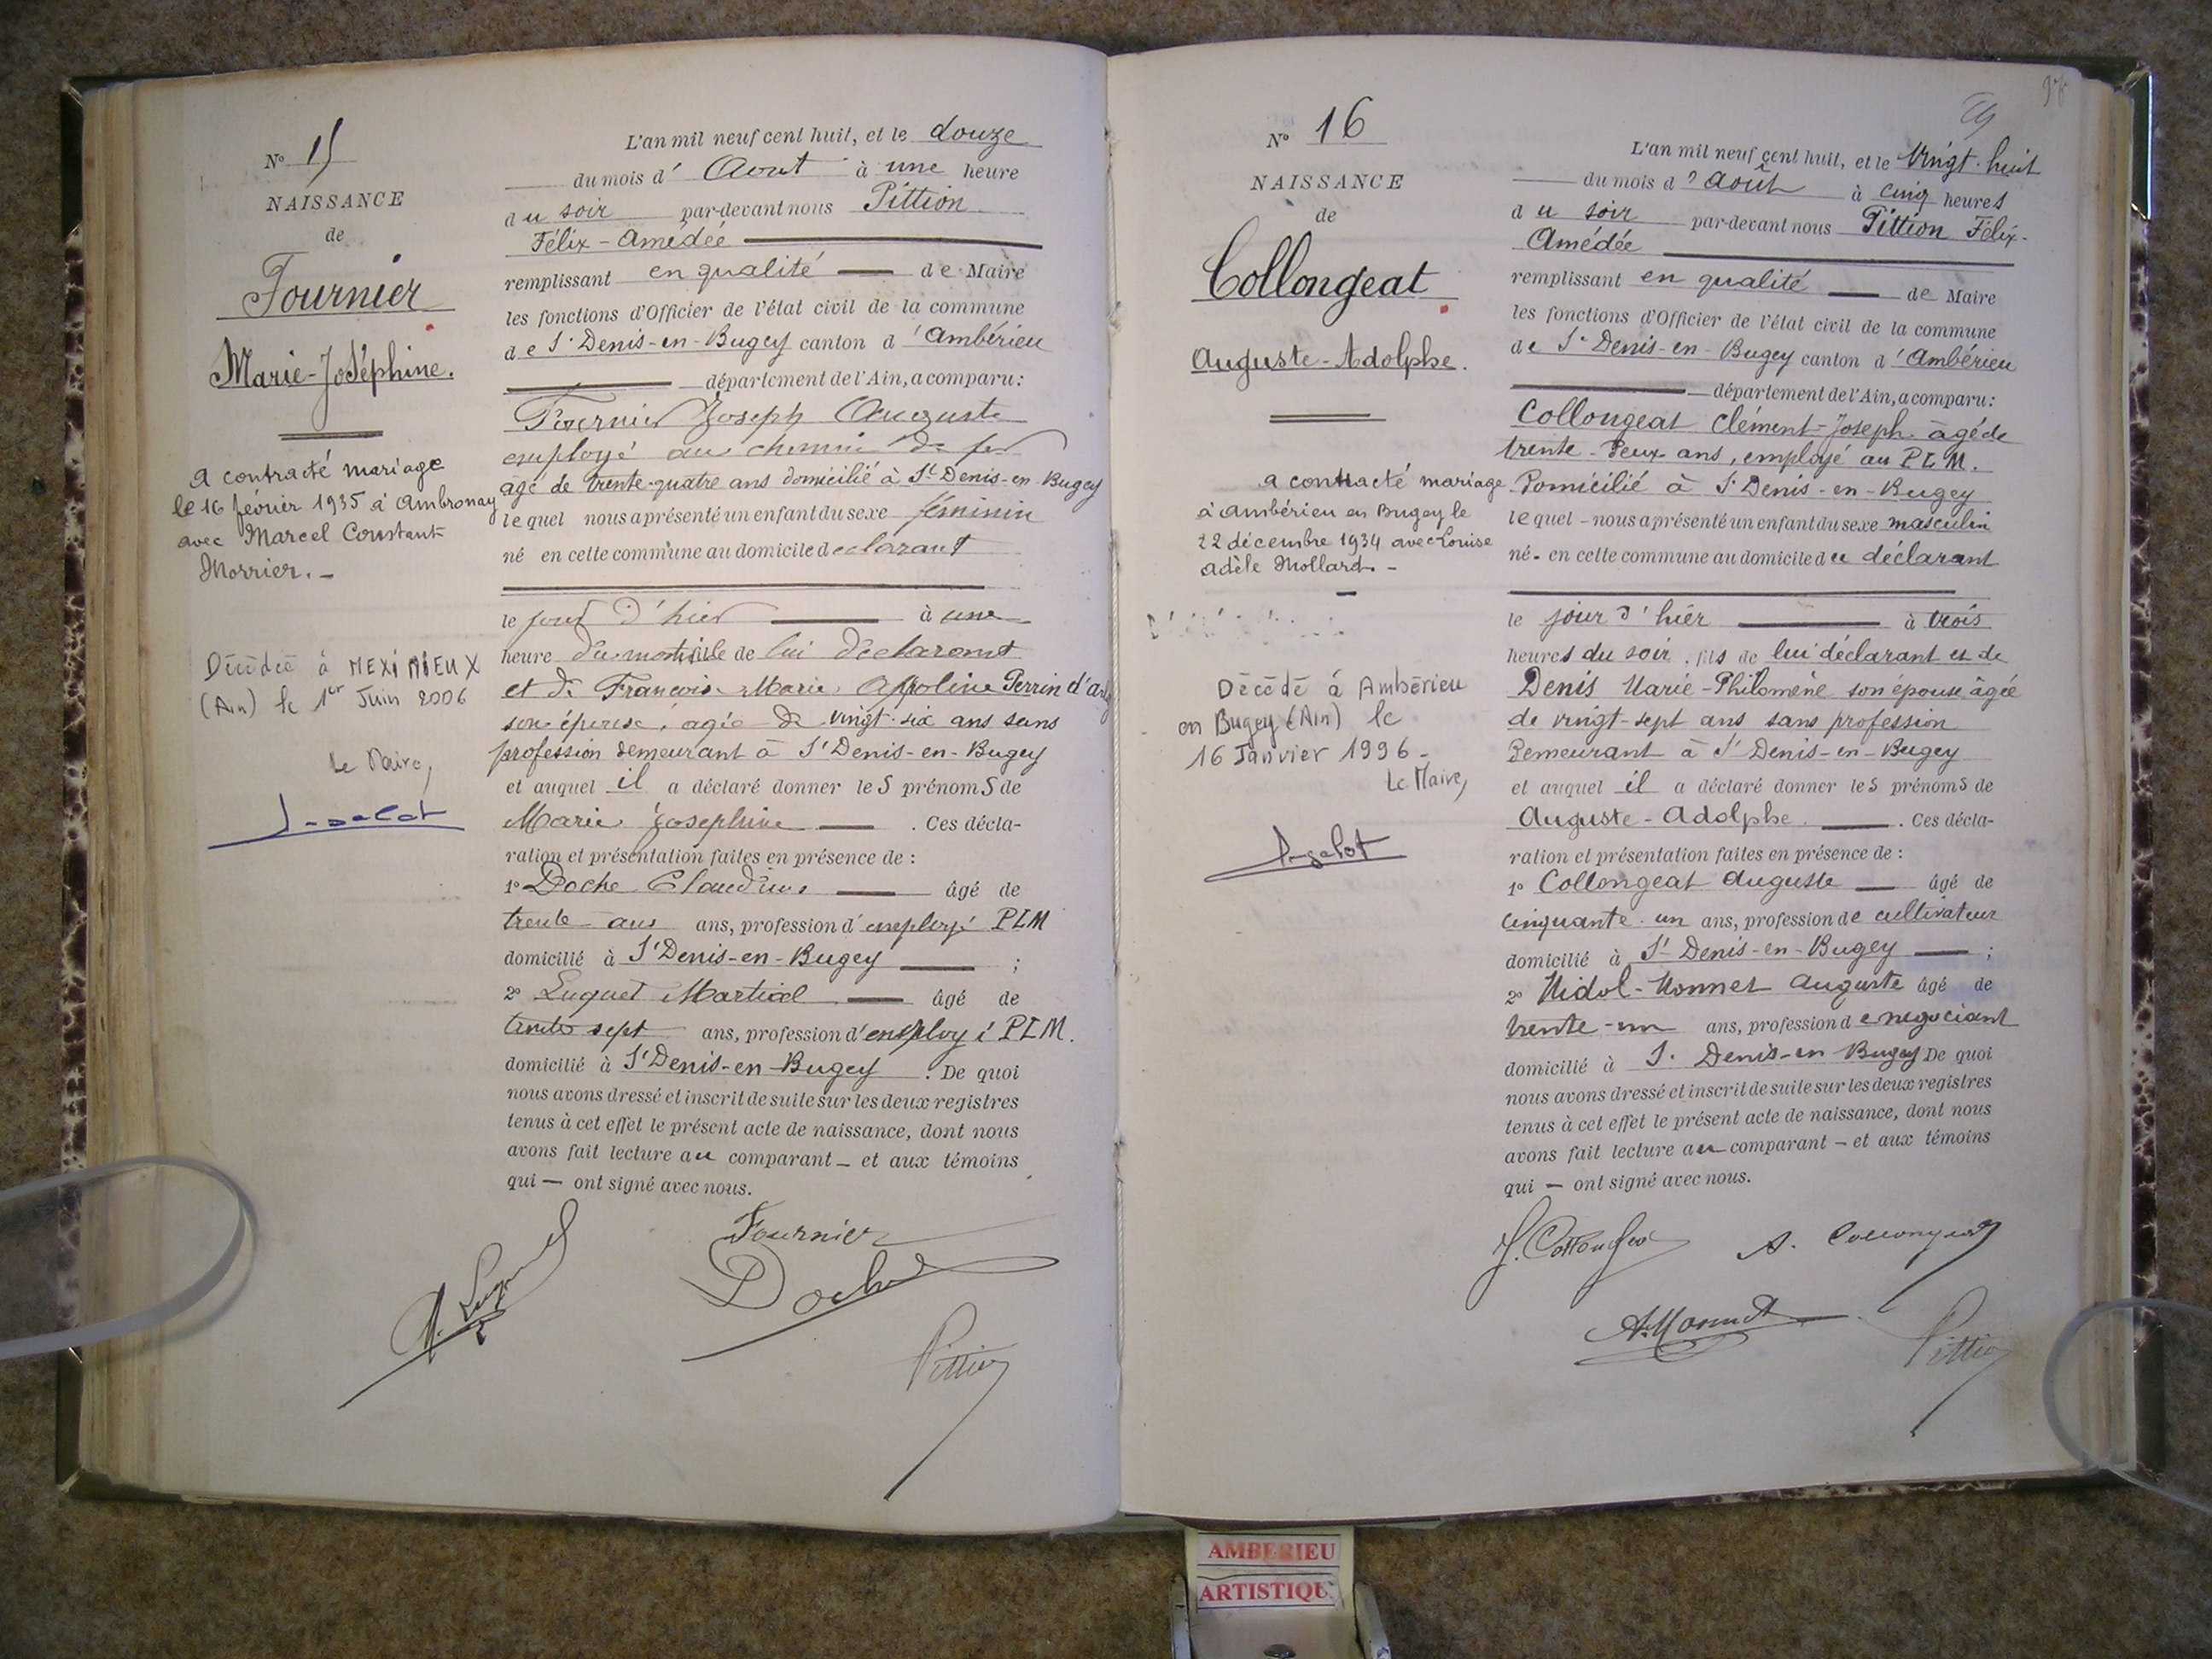 N° 15
NAISSANCE
de
Fournier
Marie-Joséphine.
a contracté mariage
le 16 février 1935 à Ambronay
avec Marcel Constant
Morrier. -
Décédée à MEXIMIEUX
(Ain) le 1er Juin 2006
Le Maire,
L'an mil neuf cent huit, et le douze
du mois d' Aout à une heure
du soir par-devant nous Pittion
Félix-Amédée
remplissant en qualité de Maire
les fonctions d'Officier de l'état civil de la commune
de St Denis-en-Bugey canton d'Ambérieu
département de l'Ain, a comparu:
Fournier Joseph Auguste
employé au chemin de fer
agé de trente-quatre ans domicilié à St Denis-en-Bugey
lequel nous a présenté un enfant du sexe féminin
né en cette commune au domicile declarant
le jour d'hier à une
heure du fille de lui déclarant
et de François Marie Appoline Perrin
son épouse, agée de vingt-six ans sans
profession demeurant à St Denis-en-Bugey
et auquel il a déclaré donner les prénoms de
Marie Josephine . Ces décla-
ration et présentation faites en présence de :
1° Doche Claudius âgé de
trente ans ans, profession d'employé PLM
domicilié à St Denis-en-Bugey ;
2° Luquet Martial âgé de
trente sept ans, profession d'employé PLM.
domicilié à St Denis-en-Bugey . De quoi
nous avons dressé et inscrit de suite sur les deux registres
tenus à cet effet le présent acte de naissance, dont nous
avons fait lecture au comparant - et aux témoins
qui — ont signé avec nous.
Fournier
M. Luquet
Doche
Pittion
97
N° 16
NAISSANCE
de
Collongeat
Auguste-Adolphe.
a contracté mariage
à Ambérieu en Bugey le
22 décembre 1934 avec Louise
Adèle Mollard. -
Décédé à Ambérieu
en Bugey (Ain) le
16 Janvier 1996 -
Le Maire,
L'an mil neuf cent huit, et le vingt-huit
du mois d'août à cinq heures
du soir par-devant nous Pittion Félix-
Amédée
remplissant en qualité de Maire
les fonctions d'Officier de l'état civil de la commune
de St Denis-en-Bugey canton d'Ambérieu
département de l'Ain, a comparu:
Collongeat Clément-Joseph âgé de
trente-deux ans, employé au P.L.M.
Domicilié à St Denis-en-Bugey
lequel - nous a présenté un enfant du sexe masculin
né - en cette commune au domicile du déclarant
le jour d'hier à trois
heures du soir, fils de lui déclarant et de
Denis Marie-Philomène son épouse âgée
de vingt-sept ans sans profession
Demeurant à St Denis-en-Bugey
et auquel il a déclaré donner les prénoms de
Auguste-Adolphe . Ces décla-
ration et présentation faites en présence de :
1° Collongeat Auguste âgé de
cinquante-un ans, profession de cultivateur
domicilié à St Denis-en-Bugey ;
2° Nidol-Monnet Auguste âgé de
trente-un ans, profession de negociant
domicilié à St Denis-en-Bugey De quoi
nous avons dressé et inscrit de suite sur les deux registres
tenus à cet effet le présent acte de naissance, dont nous
avons fait lecture au comparant - et aux témoins
qui — ont signé avec nous.
J. Collongeat A. Collongeat
A. Monnet
Pittion
AMBERIEU
ARTISTIQU